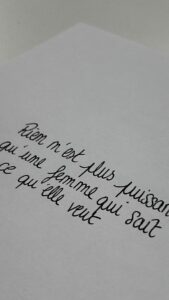 Rien n'est plus puissan
qu'une femme qui sait
ce qu'elle veut